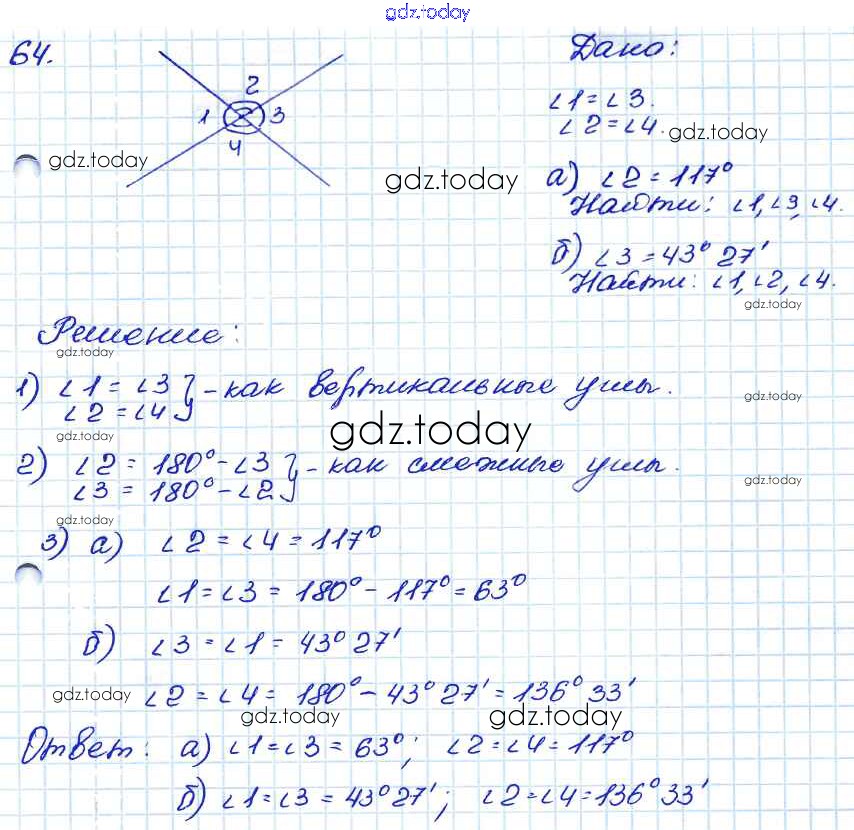 gdz.today
64.
2
1 3
4
gdz.today
Дано:
∠1=∠3.
∠2=∠4.
gdz.today
gdz.today
а) ∠2=117°
Найти: ∠1,∠3,∠4.
б) ∠3=43° 27'
Найти: ∠1,∠2,∠4.
gdz.today
Решение:
gdz.today
1) ∠1=∠3
∠2=∠4 } - как вертикальные углы.
gdz.today
gdz.today
gdz.today
2) ∠2= 180°-∠3
∠3= 180°-∠2 } - как смежные углы.
gdz.today
gdz.today
3) а) ∠2=∠4=117°
∠1=∠3= 180°-117°=63°
б) ∠3=∠1= 43° 27'
gdz.today
∠2=∠4= 180°-43° 27'=136° 33'
gdz.today
gdz.today
Ответ: а) ∠1=∠3=63°; ∠2=∠4=117°
б) ∠1=∠3=43°27'; ∠2=∠4=136°33'